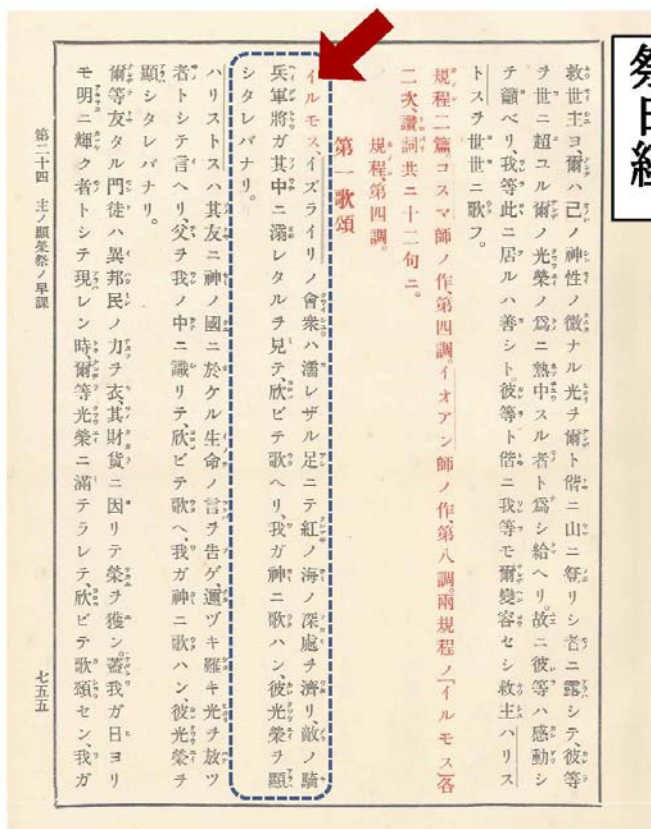 祭日經
救世主ヨ、爾ハ己ノ神性ノ微ナル光ヲ爾ト偕ニ山ニ登リシ者ニ露シテ、彼等
ヲ世ニ超ユル爾ノ光榮ノ爲ニ熱中スル者ト爲シ給ヘリ。故ニ彼等ハ感動シ
テ籲ベリ、我等此ニ居ルハ善シト。彼等ト偕ニ我等モ爾變容セシ救主ハリス
トスヲ世世ニ歌フ。
規程二篇。コスマ師ノ作、第四調。イオアン師ノ作、第八調。兩規程ノ「イルモス」各
二次、讃詞共ニ十二句ニ。
規程、第四調。
第一歌頌
イルモス、イズライリノ會衆ハ濡レザル足ニテ紅ノ海ノ深處ヲ濟リ、敵ノ騎
兵軍將ガ其中ニ溺レタルヲ見テ、欣ビテ歌ヘリ、我ガ神ニ歌ハン、彼光榮ヲ顯
シタレバナリ。
ハリストスハ其友ニ神ノ國ニ於ケル生命ノ言ヲ告ゲ、邇ヅキ難キ光ヲ放ツ
者トシテ言ヘリ、父ヲ我ノ中ニ識リテ、欣ビテ歌ヘ、我ガ神ニ歌ハン、彼光榮ヲ
顯シタレバナリ。
爾等友タル門徒ハ異邦民ノ力ヲ衣、其財貨ニ因リテ榮ヲ獲ン。蓋我ガ日ヨリ
モ明ニ輝ク者トシテ現レン時、爾等光榮ニ滿テラレテ、欣ビテ歌頌セン、我ガ
第二十四 主ノ顯榮祭ノ早課
七五五